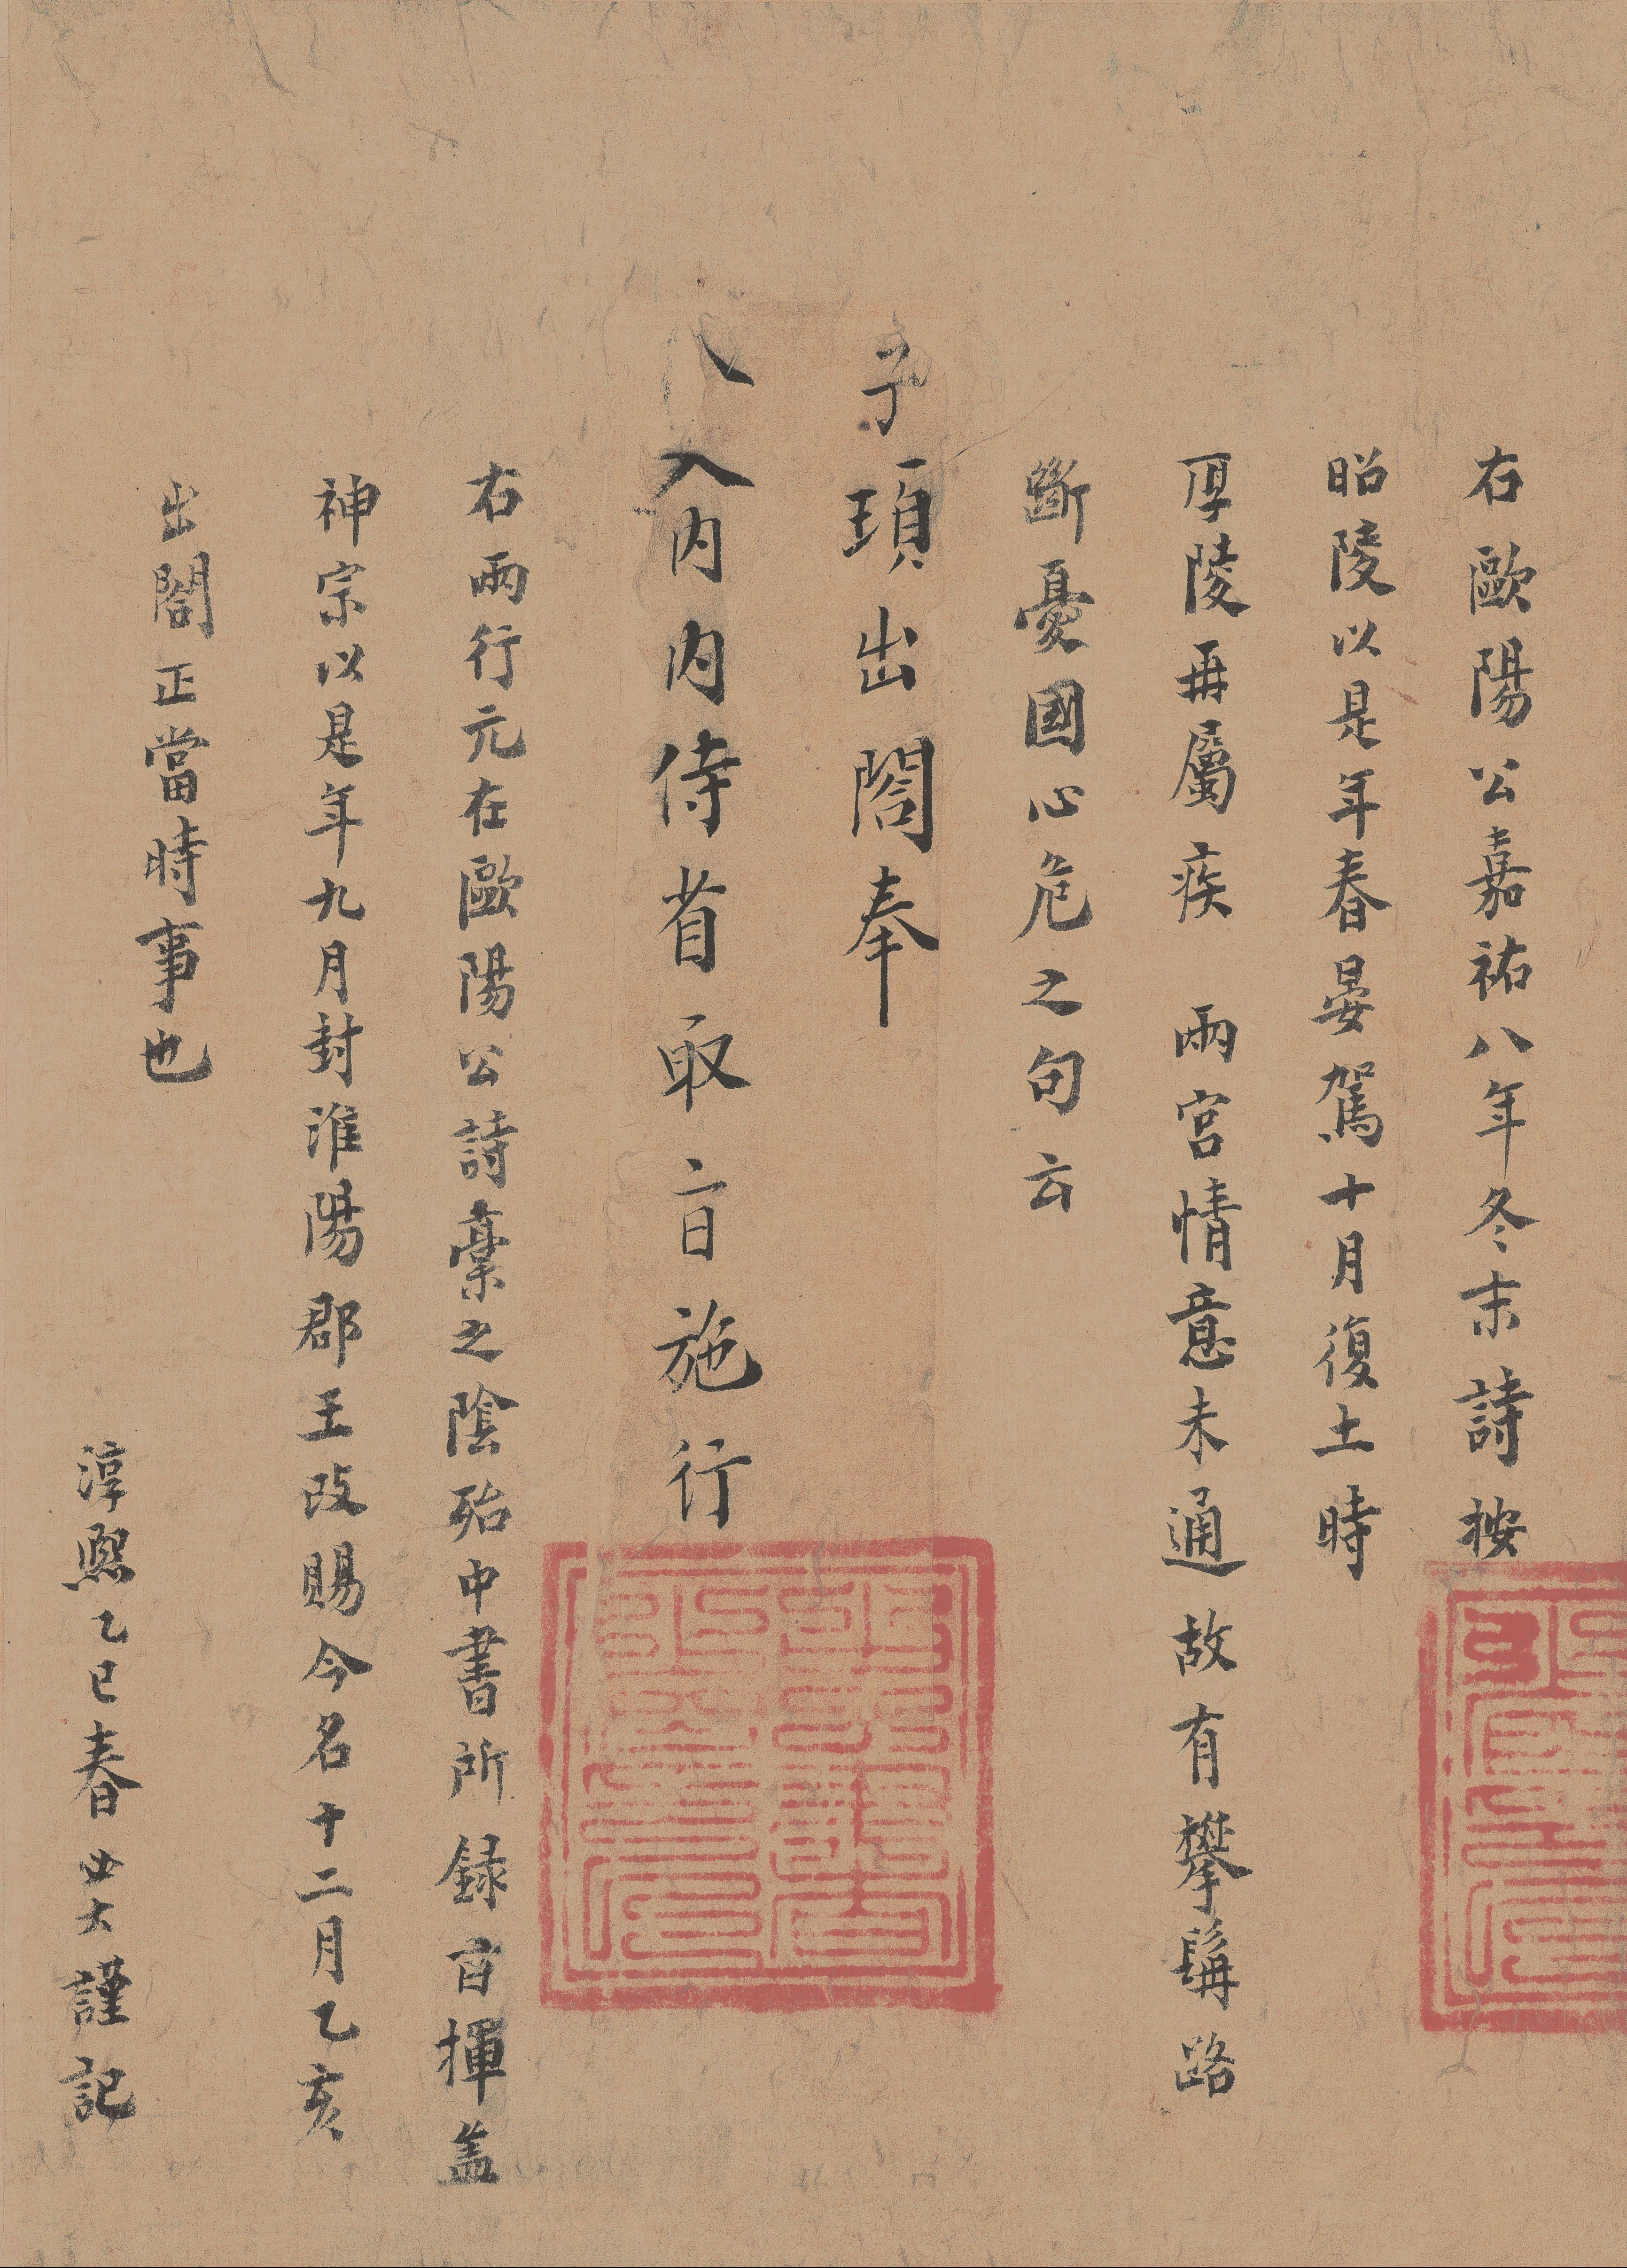 右歐陽公嘉祐八年冬末詩按
昭陵以是年春晏駕十月復土時
厚陵再屬疾 兩宮情意未通故有攀髯路
斷憂國心危之句云
子頊出閤奉
入內內侍省取旨施行
右兩行元在歐陽公詩稾之陰殆中書所錄旨揮蓋
神宗以是年九月封淮陽郡王改賜今名十二月乙亥
出閤正當時事也
淳熙乙巳春 謹記